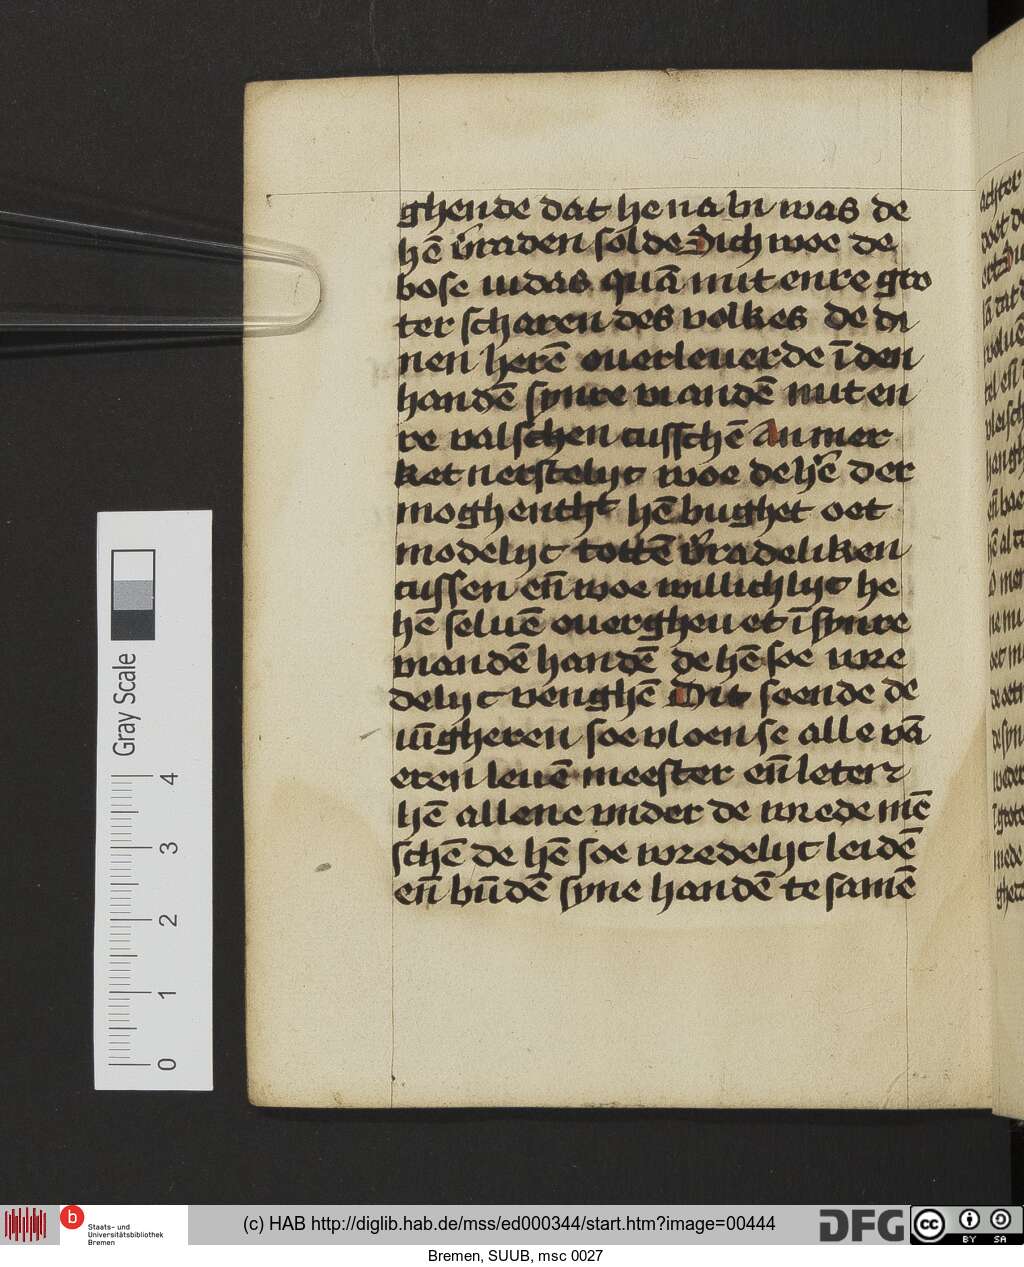 ghende dat he na bi was de
hē v̄raden solde Sich woe de
bose iudas quā mit enre gro
ter scharen des volkes de di
nen herē ouerleuerde ī den
handē synre viandē mit en
re valschen cusschē An mer
ket nerstelijt woe de hē der
moghentht hē bughet oet
modelijt tottē v̄radeliken
cussen eñ woe willichlijt he
hē seluē ouergheuet ī synre
viandē handē de hē soe wre
delijt venghē Dit seende de
iūgheren soe vloen se alle vā
eren leuē meester eñ leter
hē allene vnder de wrede mē
schē de hē soe wredelijt leidē
eñ būdē syne handē te samē
achter
Gray Scale
4
3
2
1
0
b
Staats- und
Universitätsbibliothek
Bremen
(c) HAB http://diglib.hab.de/mss/ed000344/start.htm?image=00444
DFG
cc
BY SA
Bremen, SUUB, msc 0027